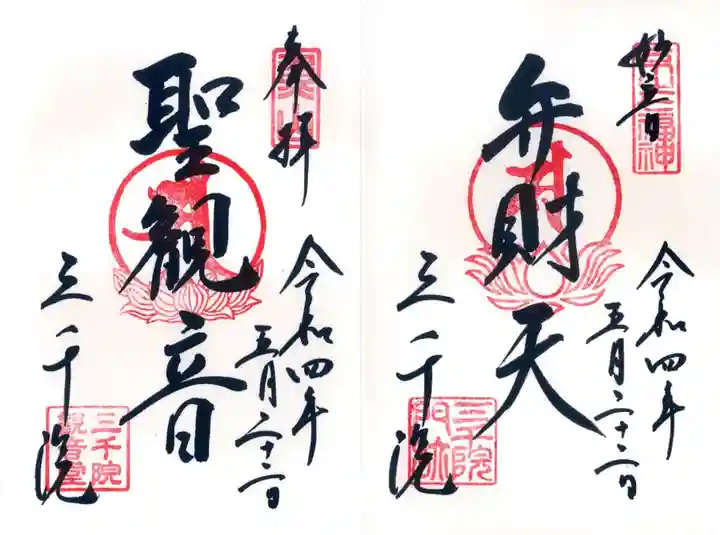 奉拝
令和四年
五月二十二日
聖観音
三千院
三千院
観音堂
妙音
令和四年
五月二十二日
弁財天
三千院
三千院
門跡